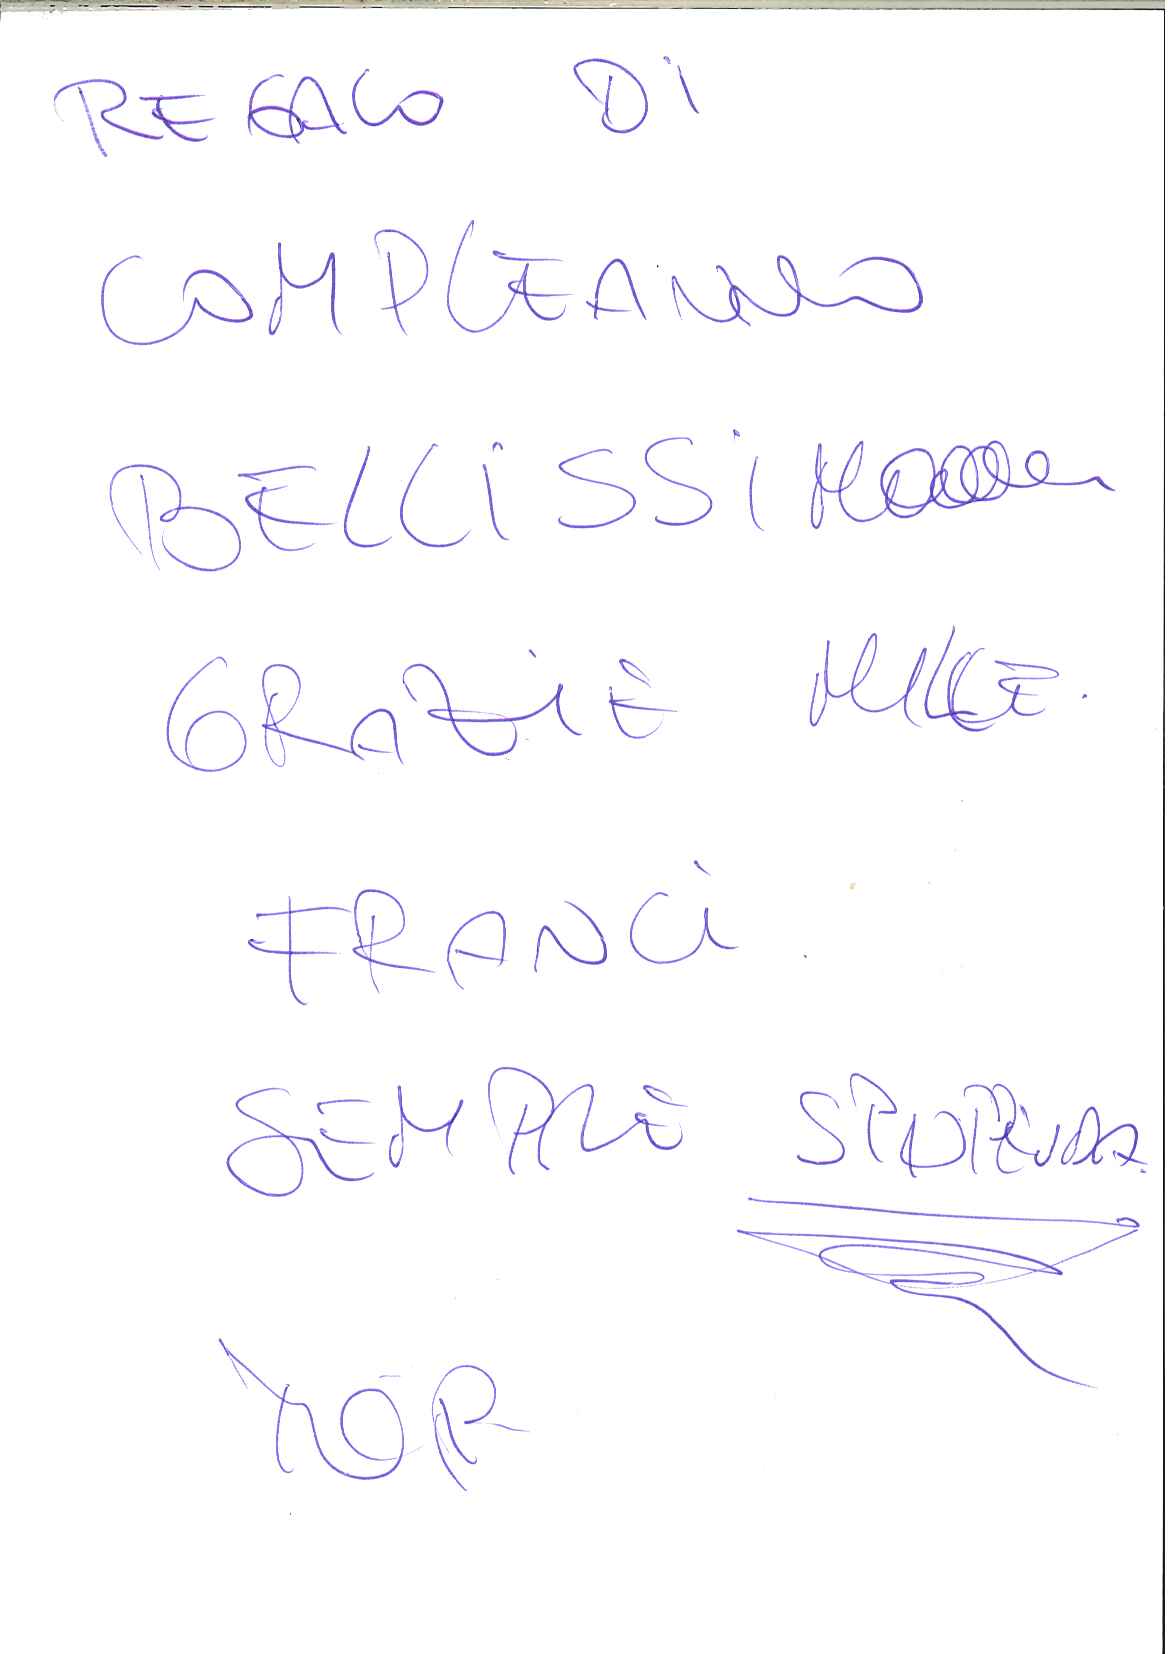 REGALO DI
COMPLEANNO
BELLISSIMOOOOO
GRAZIE MILLE.
FRANCI
SEMPRE STUPENDA
TOP